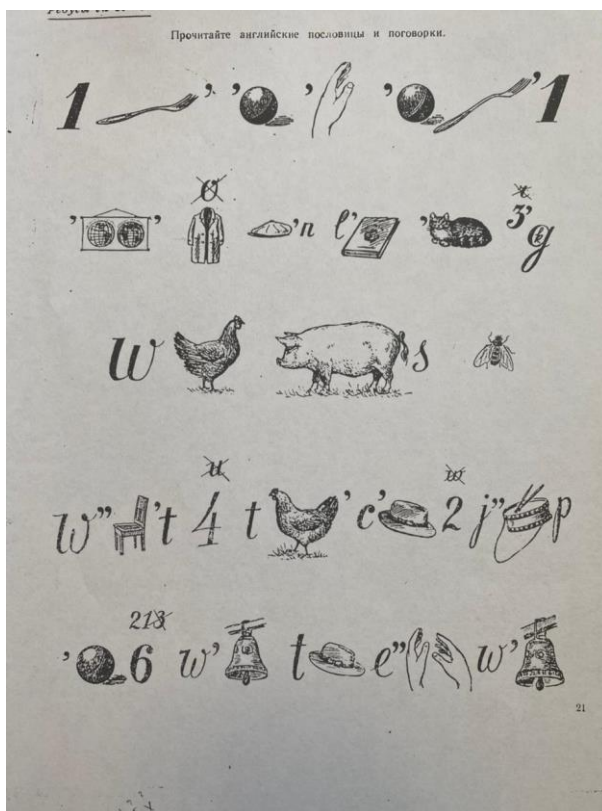 Прочитайте английские пословицы и поговорки.
1 ’ ’ ’ ’ ’ 1
o t
’ ’ ’n l’ ’ 3’ g k
w s
u w
w” ’t 4 t ’ c’ 2 j” p
213
’ 6 w’ t e” w’
21